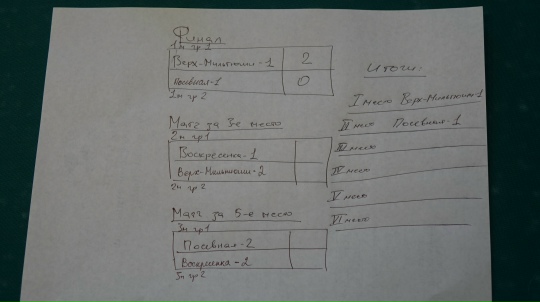 Финал
1м гр 1
Верх-Мильтюши-1 2
Посевная-1 0
1м гр 2
Матч за 3-е место
2м гр1
Воскресенка-1
Верх-Мильтюши-2
2м гр 2
Матч за 5-е место
3м гр1
Посевная-2
Воскресенка-2
гр2
Итоги:
I место Верх-Мильтюши-1
II место Посевная-1
III место
IV место
V место
VI место